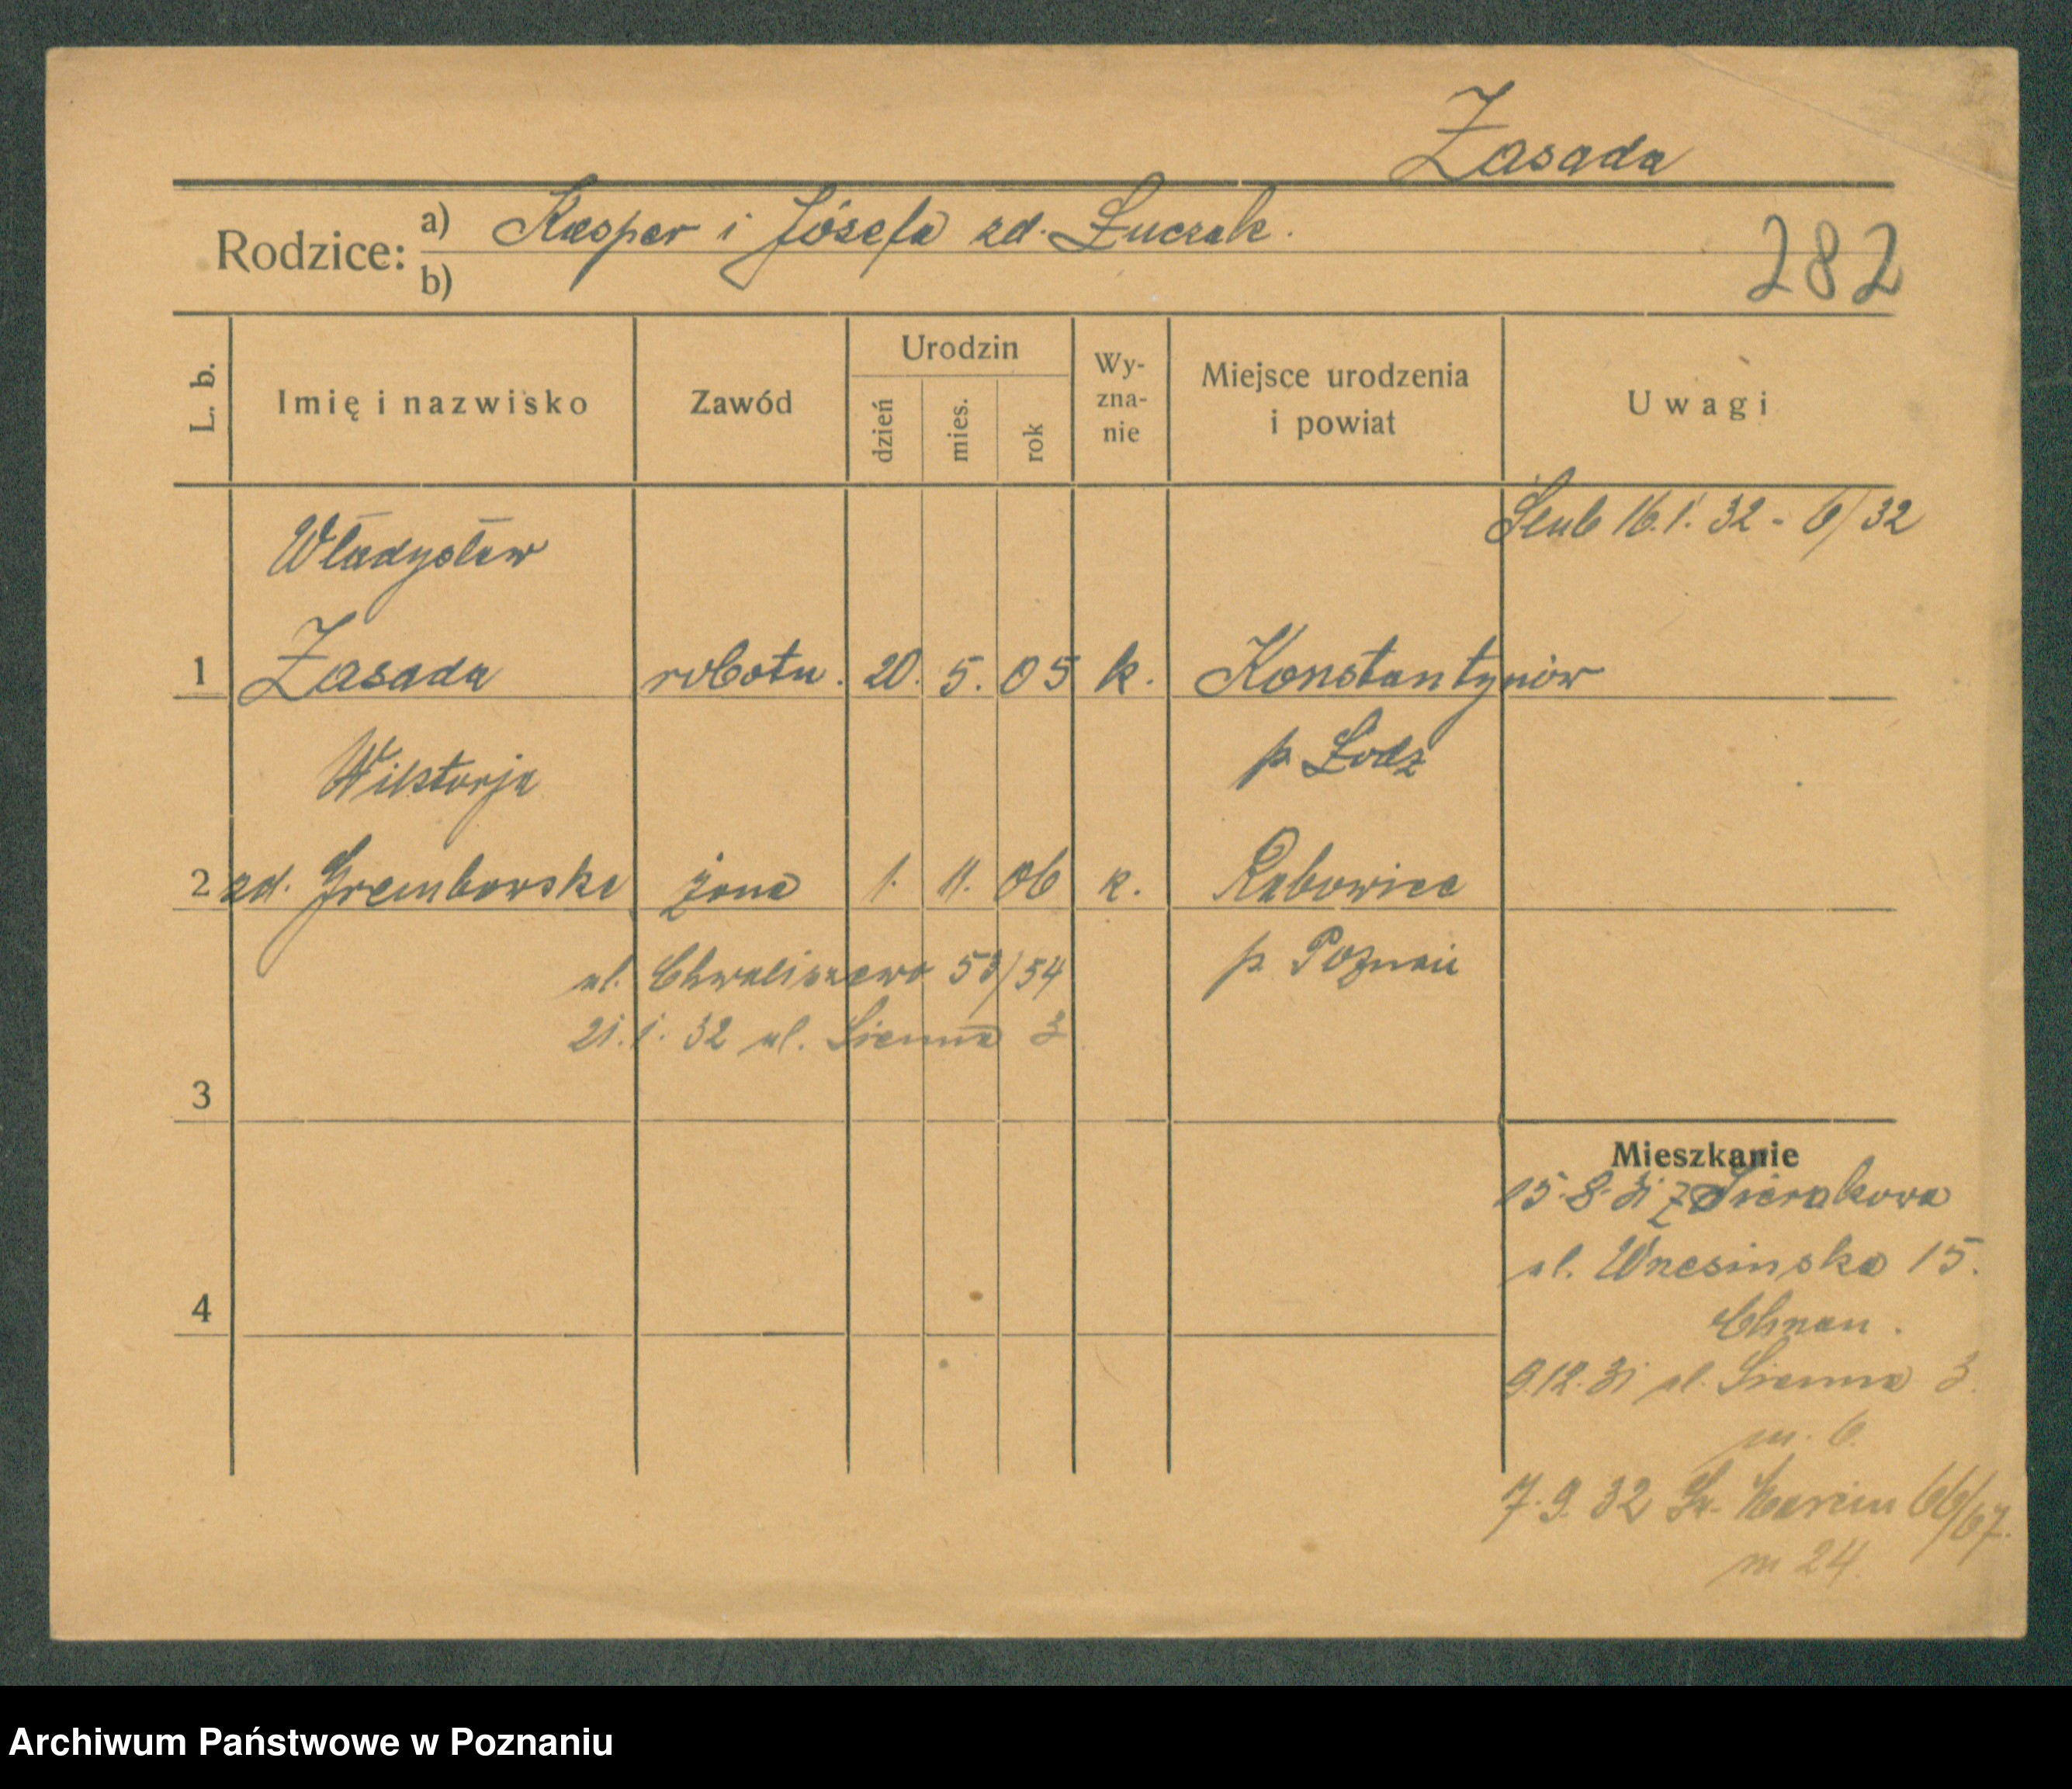 Zasada
Rodzice: a) Kasper i Józefa zd. Łuczak.
b)
282
L. b.
Imię i nazwisko
Zawód
Urodzin
dzień
mies.
rok
Wy-
zna-
nie
Miejsce urodzenia
i powiat
Uwagi
Ślub 16.1. 32 - 6/32
Władysław
1 Zasada robotn. 20. 5. 05 k. Konstantynów
p. Łódz
Wiktorja
2 zd. Grembowska żona 1. 11. 06 k. Rabowice
p. Poznań
ul. Chwaliszewo 53/54
21.1. 32 ul. Sienna 3
3
Mieszkanie
15.8.31 z Sierakowa
ul. Wrzesinska 15.
4
9.12.31 ul. Sienna 3.
m. 6.
7.9.32 66/67.
m 24.
Archiwum Państwowe w Poznaniu